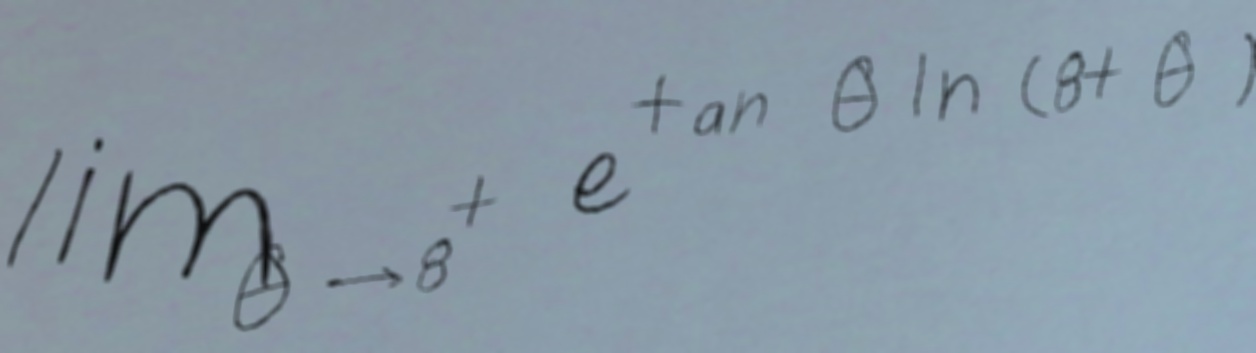 \lim_{\theta \to 8^+} e^{\tan \theta \ln (8 + \theta)}